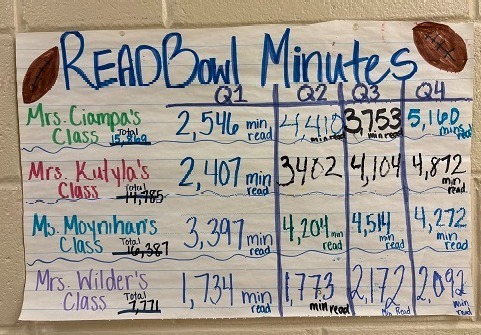 READBowl Minutes
Q1 Q2 Q3 Q4
Mrs. Ciampa's
Class Total 15,869
2,546 min read
4,410 min read
3,753 min read
5,160 mins read
Mrs. Kutyla's
Class Total 14,785
2,407 min read
3402
4,104
4,872 min read
Ms. Moynihan's
Class Total 16,387
3,397 min read
4,204 min read
4,514 min read
4,272 min read
Mrs. Wilder's
Class Total 7,771
1,734 min read
1,773 min read
2,172 Min Read
2,092 min read